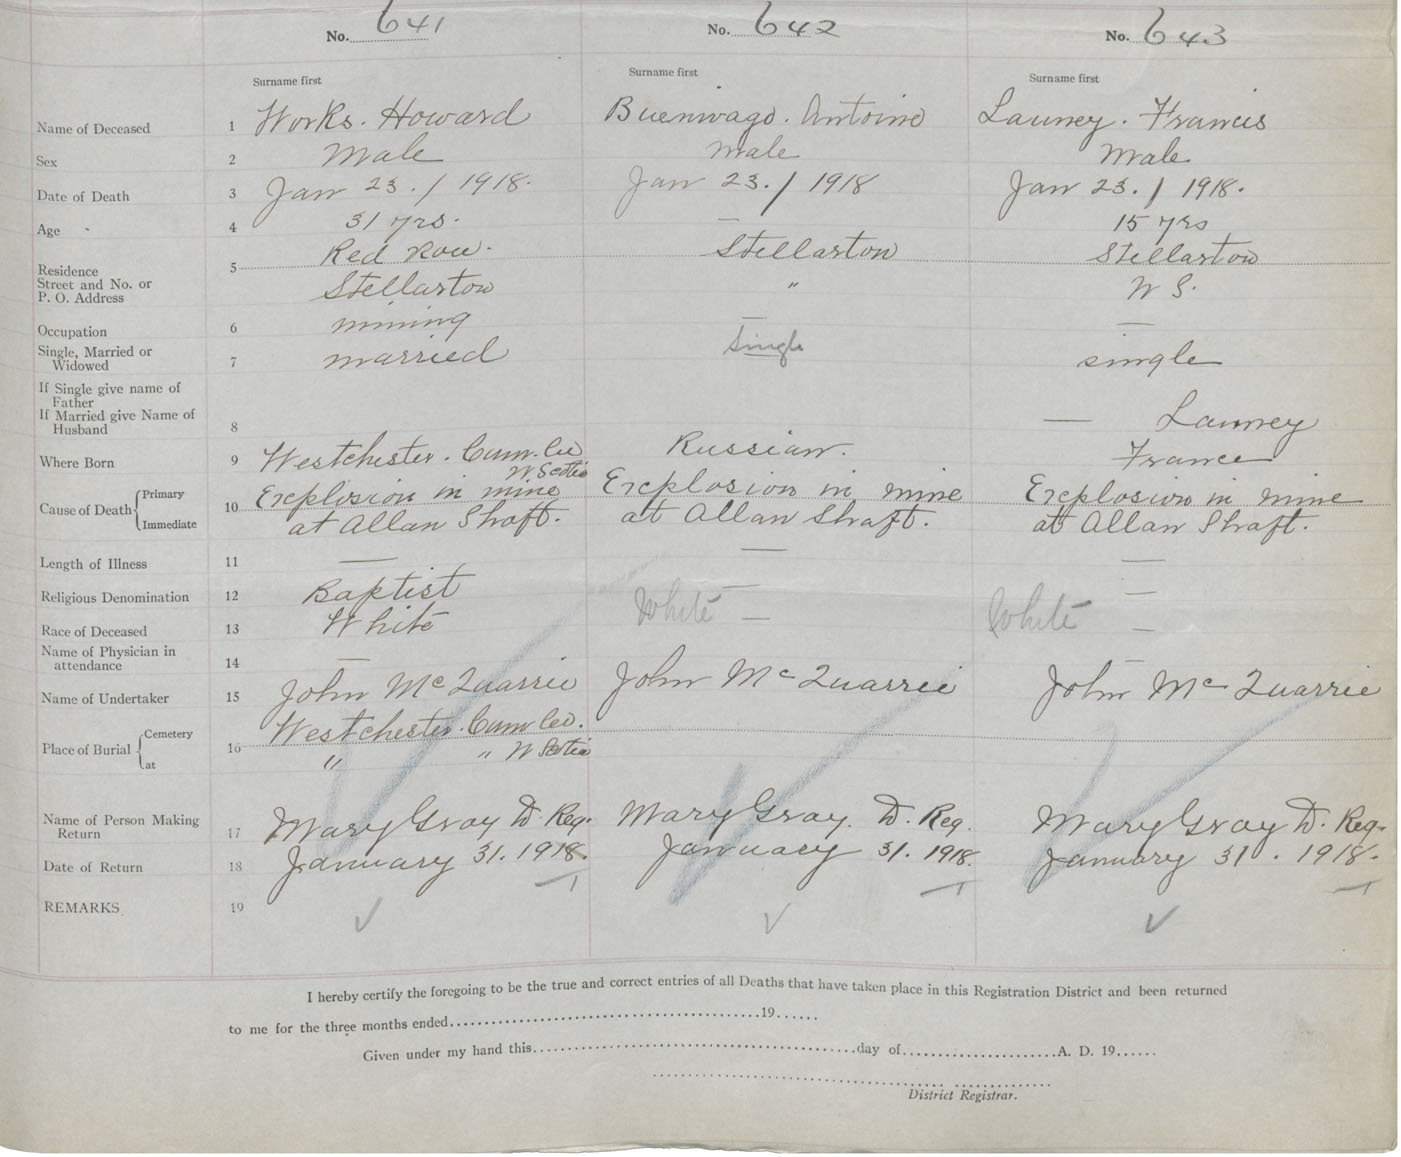 No. 641 No. 642 No. 643
Surname first Surname first Surname first
Name of Deceased 1 Works. Howard Buenwago. Antoine Launey. Francis
Sex 2 Male Male Male
Date of Death 3 Jan 23./1918. Jan 23./1918 Jan 23./1918.
Age 4 31 yrs. — 15 yrs
Residence 5 Red Row. Stellarton Stellarton
Street and No. or
P. O. Address Stellarton " N S.
Occupation 6 mining — —
Single, Married or
Widowed 7 married single single
If Single give name of
Father
If Married give Name of
Husband 8 — Launey
Where Born 9 Westchester. Cum. Co Russian. France
N Scotia
Cause of Death Primary 10 Explosion in mine Explosion in mine Explosion in mine
Immediate at Allan Shaft. at Allan Shaft. at Allan Shaft.
Length of Illness 11 — — —
Religious Denomination 12 Baptist — —
Race of Deceased 13 White White — White —
Name of Physician in
attendance 14 — —
Name of Undertaker 15 John McQuarrie John McQuarrie John McQuarrie
Place of Burial Cemetery 16 Westchester. Cum Co.
at " " N Scotia
Name of Person Making
Return 17 Mary Gray D. Reg. Mary Gray. D. Reg. Mary Gray D. Reg.
Date of Return 18 January 31. 1918. January 31. 1918. January 31. 1918.
REMARKS 19
I hereby certify the foregoing to be the true and correct entries of all Deaths that have taken place in this Registration District and been returned
to me for the three months ended 19
Given under my hand this day of A. D. 19
District Registrar.